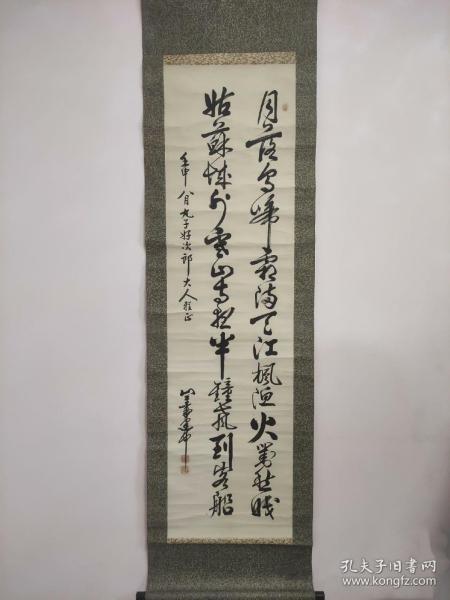 月落烏啼霜滿天江楓漁火對愁眠
姑蘇城外寒山寺夜半鐘聲到客船
壬申八月 丸子好次郎大人雅正
孔夫子旧书网
www.kongfz.com